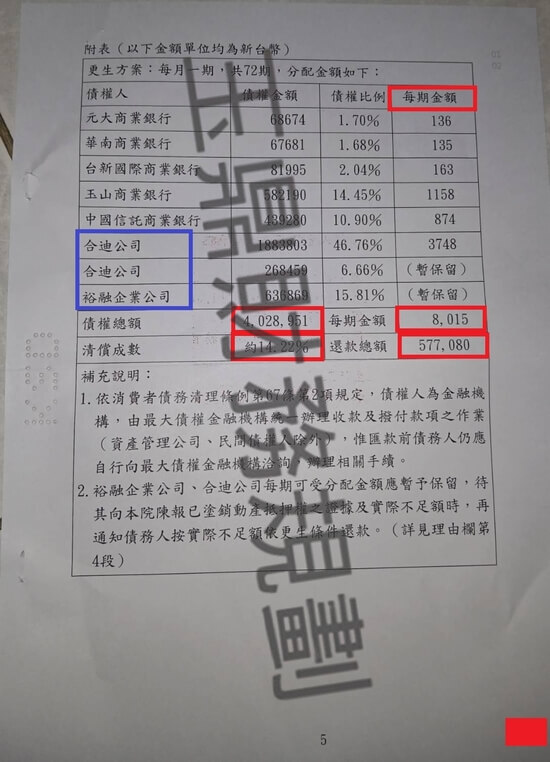 附表（以下金額單位均為新台幣）
更生方案：每月一期，共72期，分配金額如下：
債權人 債權金額 債權比例 每期金額
元大商業銀行 68674 1.70% 136
華南商業銀行 67681 1.68% 135
台新國際商業銀行 81995 2.04% 163
玉山商業銀行 582190 14.45% 1158
中國信託商業銀行 439280 10.90% 874
合迪公司 1883803 46.76% 3748
合迪公司 268459 6.66% （暫保留）
裕融企業公司 636869 15.81% （暫保留）
債權總額 4,028,951 每期金額 8,015
清償成數 約14.22% 還款總額 577,080
補充說明：
1.依消費者債務清理條例第67條第2項規定，債權人為金融機
構，由最大債權金融機構統一辦理收款及撥付款項之作業
（資產管理公司、民間債權人除外），惟匯款前債務人仍應
自行向最大債權金融機構洽詢、辦理相關手續。
2.裕融企業公司、合迪公司每期可受分配金額應暫予保留，待
其向本院陳報已塗銷動產抵押權之證據及實際不足額時，再
通知債務人按實際不足額依更生條件還款。（詳見理由欄第
4段）
玉鼎財務規劃
5